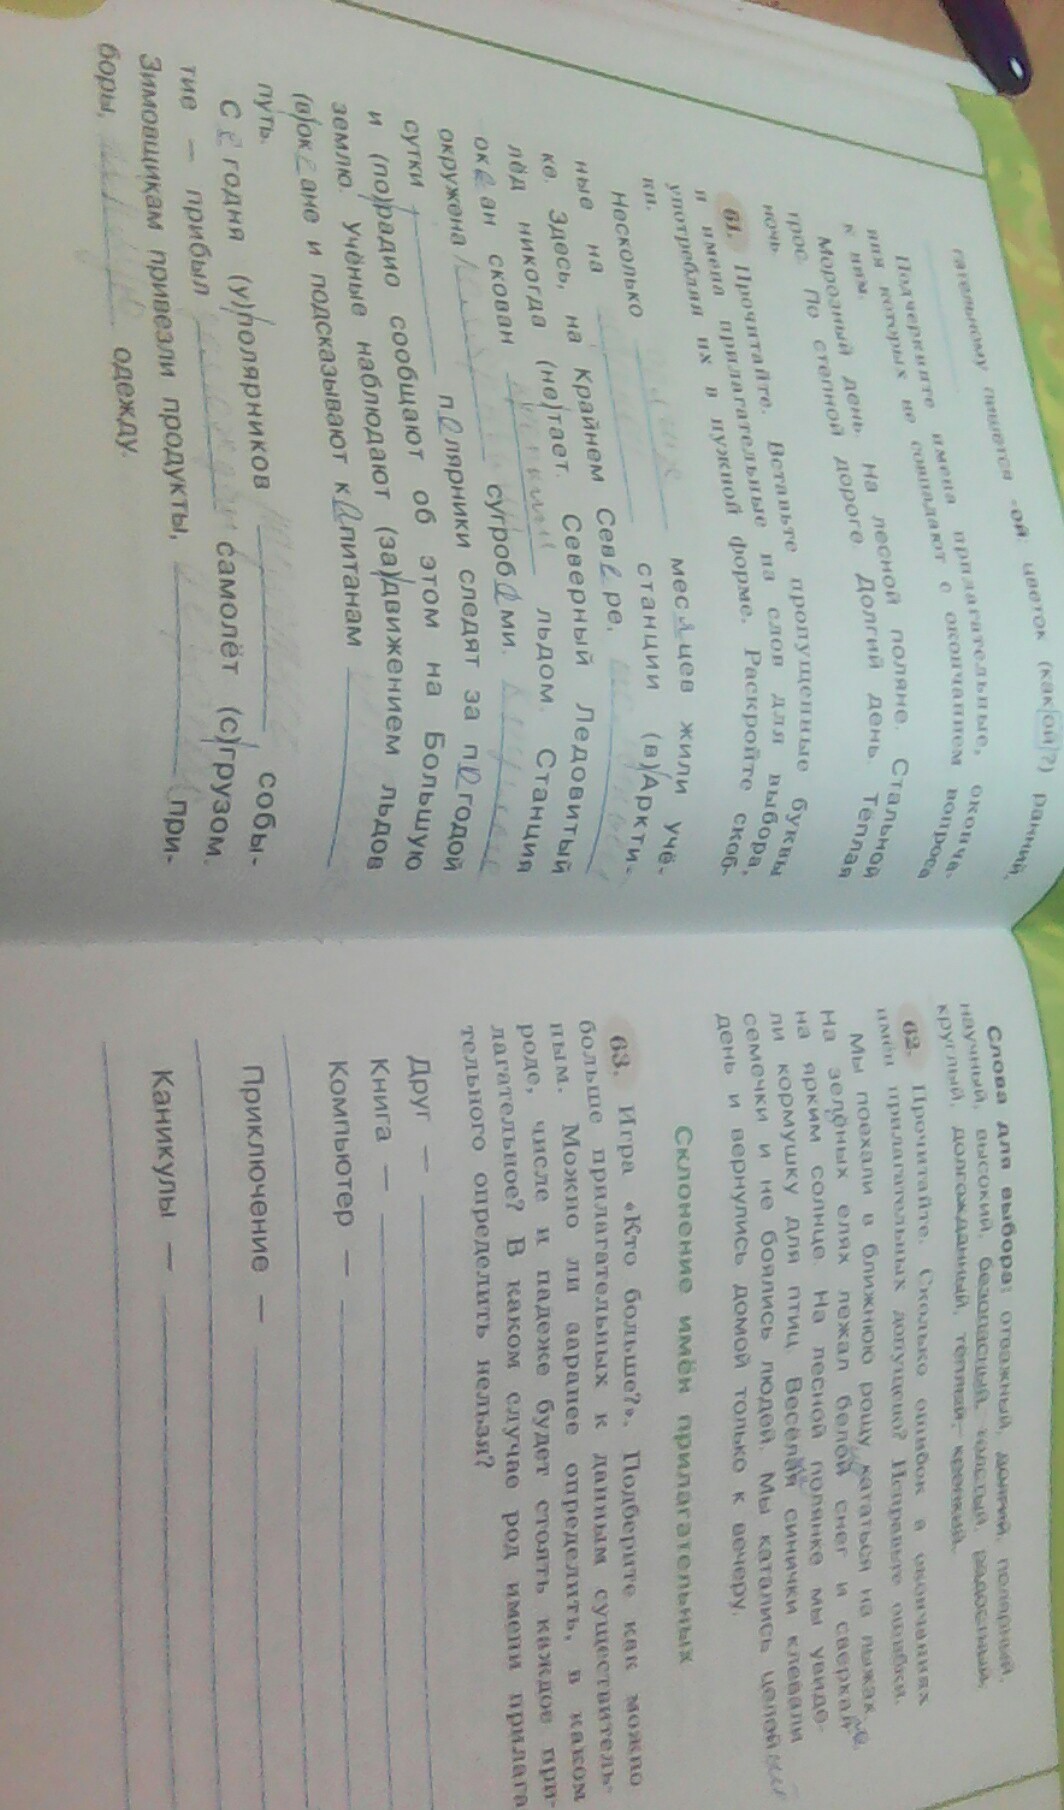 гательному пишется -ой: цветок (какой?) ранний,
Подчеркните имена прилагательные, оконча-
ния которых не совпадают с окончанием вопроса
к ним.
Морозный день. На лесной поляне. Стальной
трос. По степной дороге. Долгий день. Тёплая
ночь.
61. Прочитайте. Вставьте пропущенные буквы
и имена прилагательные из слов для выбора,
употребляя их в нужной форме. Раскройте скоб-
ки.
Несколько долгих месяцев жили учё-
ные на станции (в)Аркти-
ке. Здесь, на Крайнем Севере,
лёд никогда (не)тает. Северный Ледовитый
океан скован крепким льдом. Станция
окружена сугробами.
сутки полярники следят за погодой
и (по)радио сообщают об этом на Большую
землю. Учёные наблюдают (за)движением льдов
(в)океане и подсказывают капитанам
путь.
Сегодня (у)полярников собы-
тие – прибыл самолёт (с)грузом.
Зимовщикам привезли продукты, при-
боры, одежду.
Слова для выбора: отважный, долгий, полярный,
научный, высокий, безопасный, толстый, радостный,
круглый, долгожданный, тёплый, крепкий.
62. Прочитайте. Сколько ошибок в окончаниях
имён прилагательных допущено? Исправьте ошибки.
Мы поехали в ближнюю рощу кататься на лыжах.
На зелёных елях лежал белой снег и сверкал
на ярким солнце. На лесной полянке мы увиде-
ли кормушку для птиц. Весёлая синички клевали
семечки и не боялись людей. Мы катались целой ый
день и вернулись домой только к вечеру.
Склонение имён прилагательных
63. Игра «Кто больше?». Подберите как можно
больше прилагательных к данным существитель-
ным. Можно ли заранее определить, в каком
роде, числе и падеже будет стоять каждое при-
лагательное? В каком случае род имени прилага
тельного определить нельзя?
Друг –
Книга –
Компьютер –
Приключение –
Каникулы –